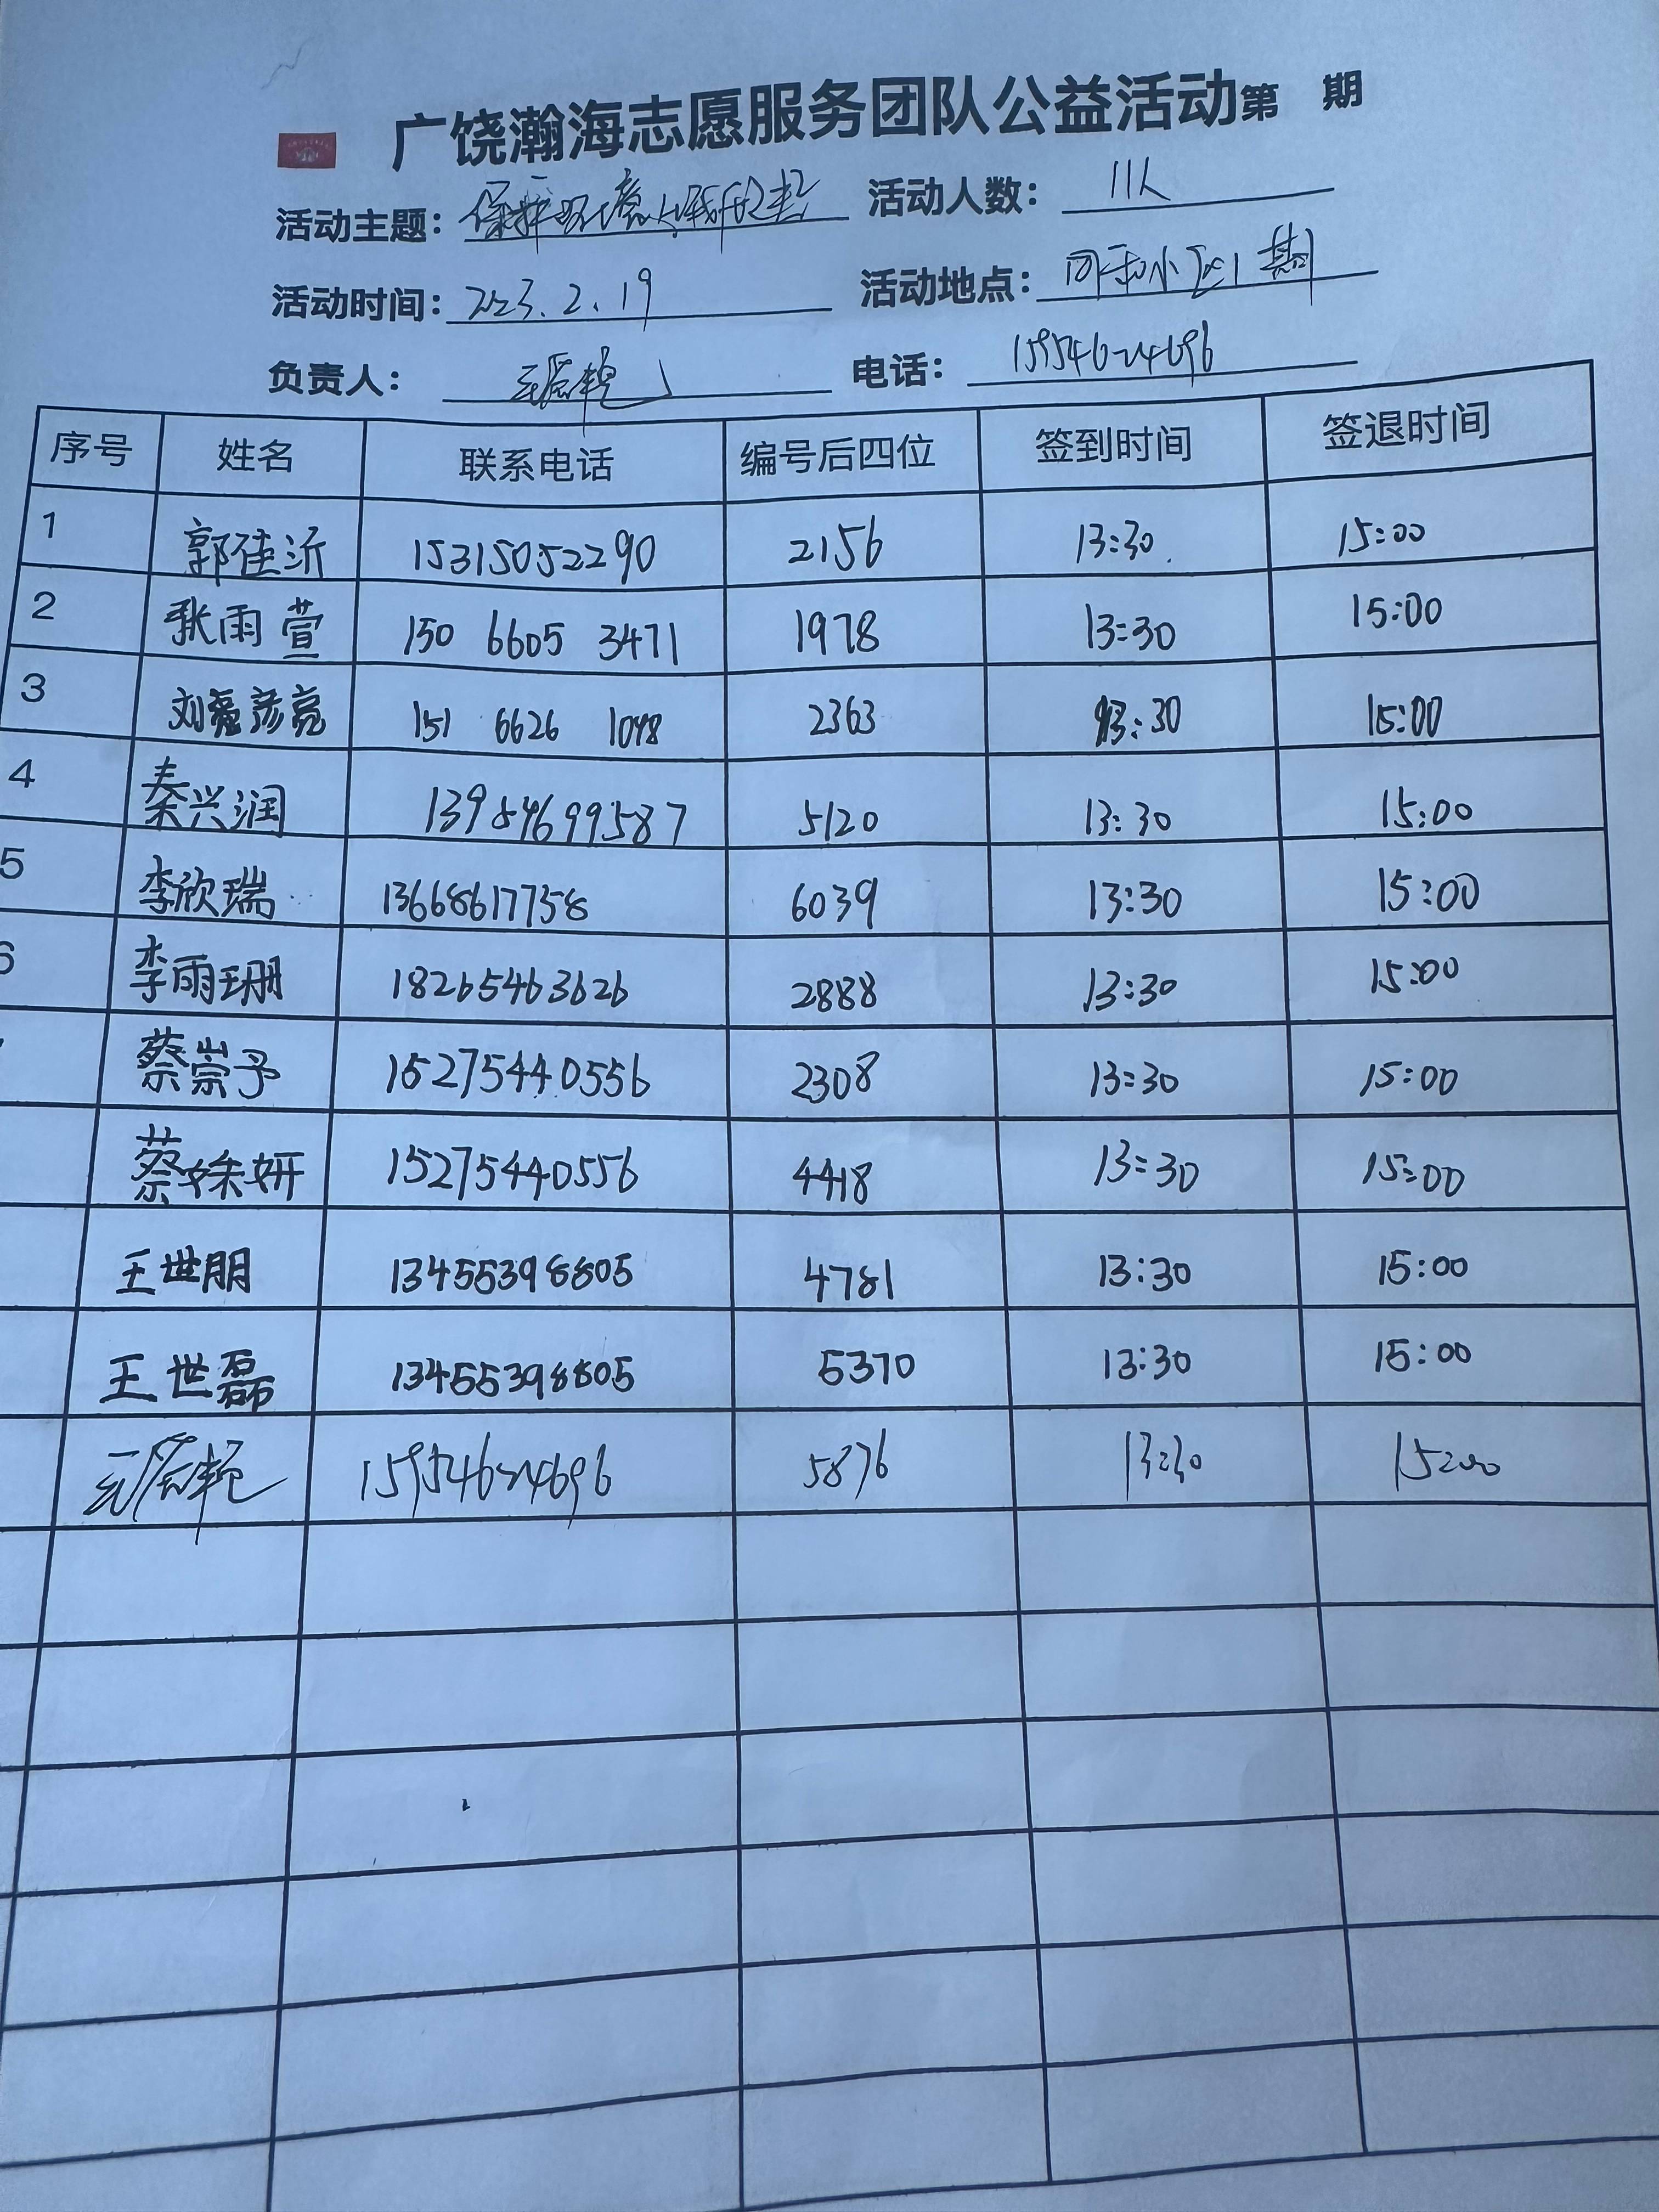 广饶瀚海志愿服务团队公益活动第 期
活动主题：保护环境从我做起 活动人数：11人
活动时间：2023.2.19 活动地点：同和小区1期
负责人： 电话：15954624696
序号 姓名 联系电话 编号后四位 签到时间 签退时间
1 郭佳沂 15315052290 2156 13:30 15:00
2 张雨萱 150 6605 3471 1978 13:30 15:00
3 刘彦亮 151 6626 1048 2363 13:30 15:00
4 秦兴润 13954699587 5120 13:30 15:00
5 李欣瑞 13668617758 6039 13:30 15:00
6 李雨珊 18265463626 2888 13:30 15:00
蔡崇予 15275440556 2308 13:30 15:00
蔡姝妍 15275440556 4418 13:30 15:00
王世朋 13455398805 4781 13:30 15:00
王世磊 13455398805 5370 13:30 15:00
15954624696 5876 13:30 15:00